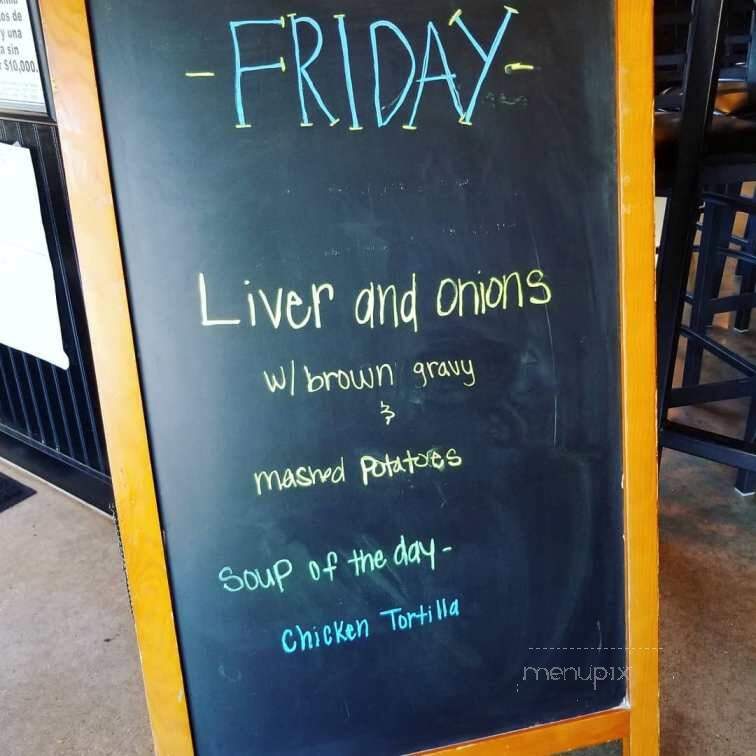 os de
y una
a sin
$10,000.
- FRIDAY -
Liver and onions
w/ brown gravy
&
mashed potatoes
Soup of the day -
Chicken Tortilla
menupix